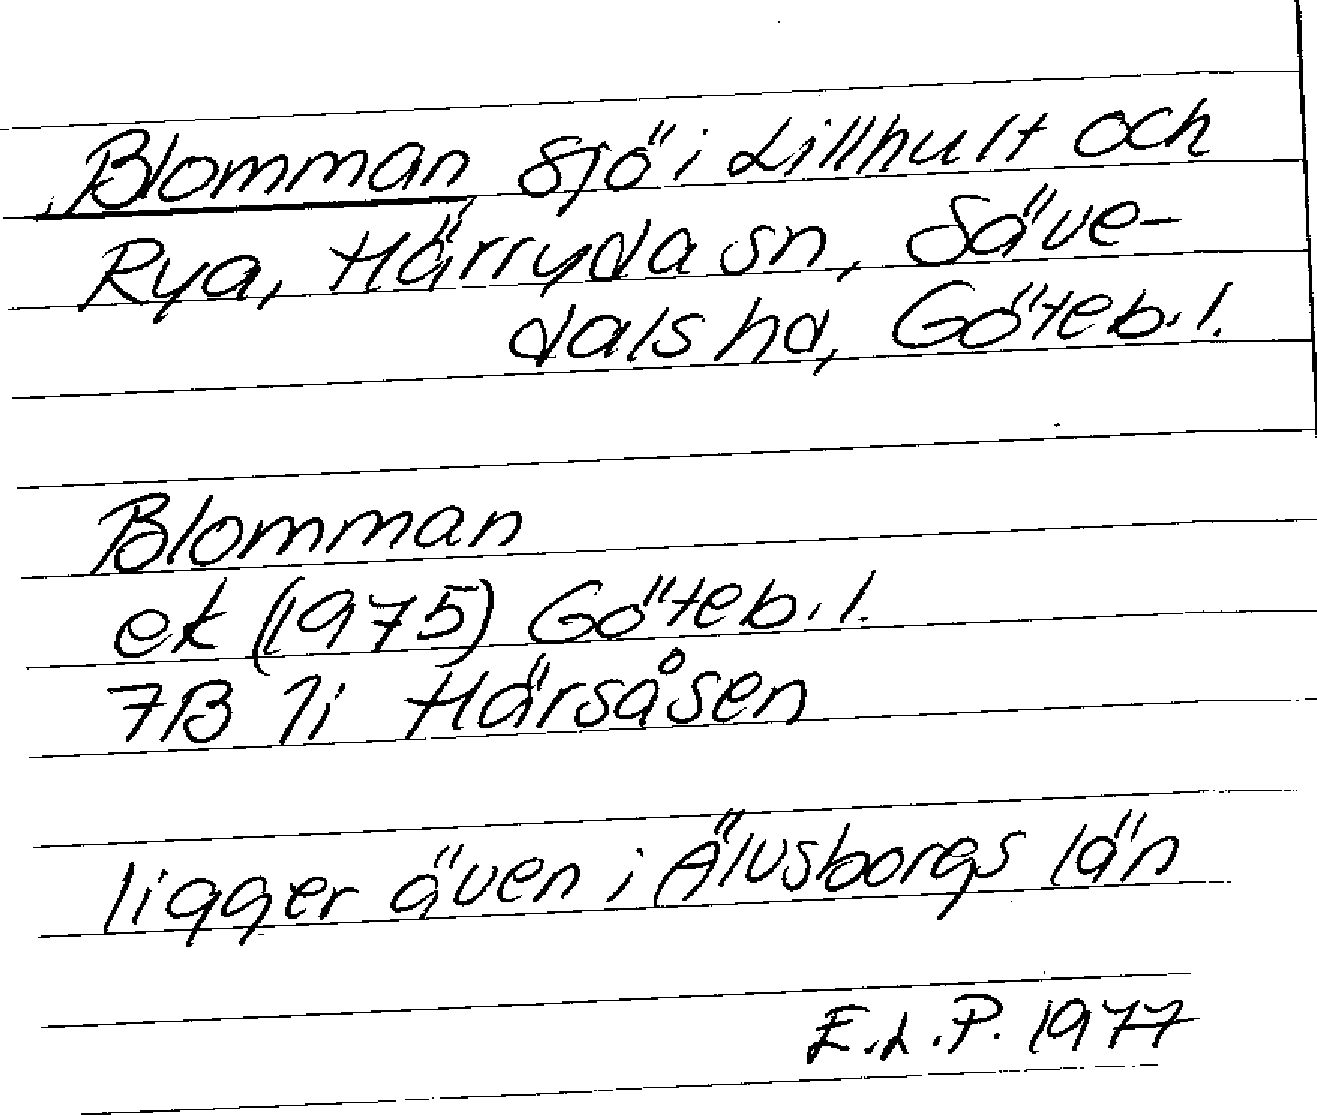 Blomman sjö i Lillhult och
Rya, Härryda sn, Säve-
dals hd, Göteb. l.
Blomman
ek (1975) Göteb. l.
7B 7i Härsåsen
ligger även i Älvsborgs län
E.L.P. 1977